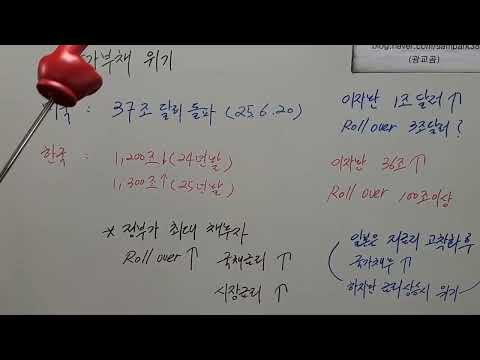 blog.naver.com/sampark38
(광교곰)
가부채 위기
국 : 37조 달러 돌파 (25.6.20)
이자만 1조 달러 ↑
Roll over 3조달러 ?
한국 : 1,200조↓ (24년말)
1,300조↑ (25년말)
이자만 36조 ↑
Roll over 100조이상
* 정부가 최대 채무자
Roll over ↑ 국채금리 ↑
시장금리 ↑
일본은 저금리 고착화 후
국가채무 ↑
하지만 금리상승시 위기